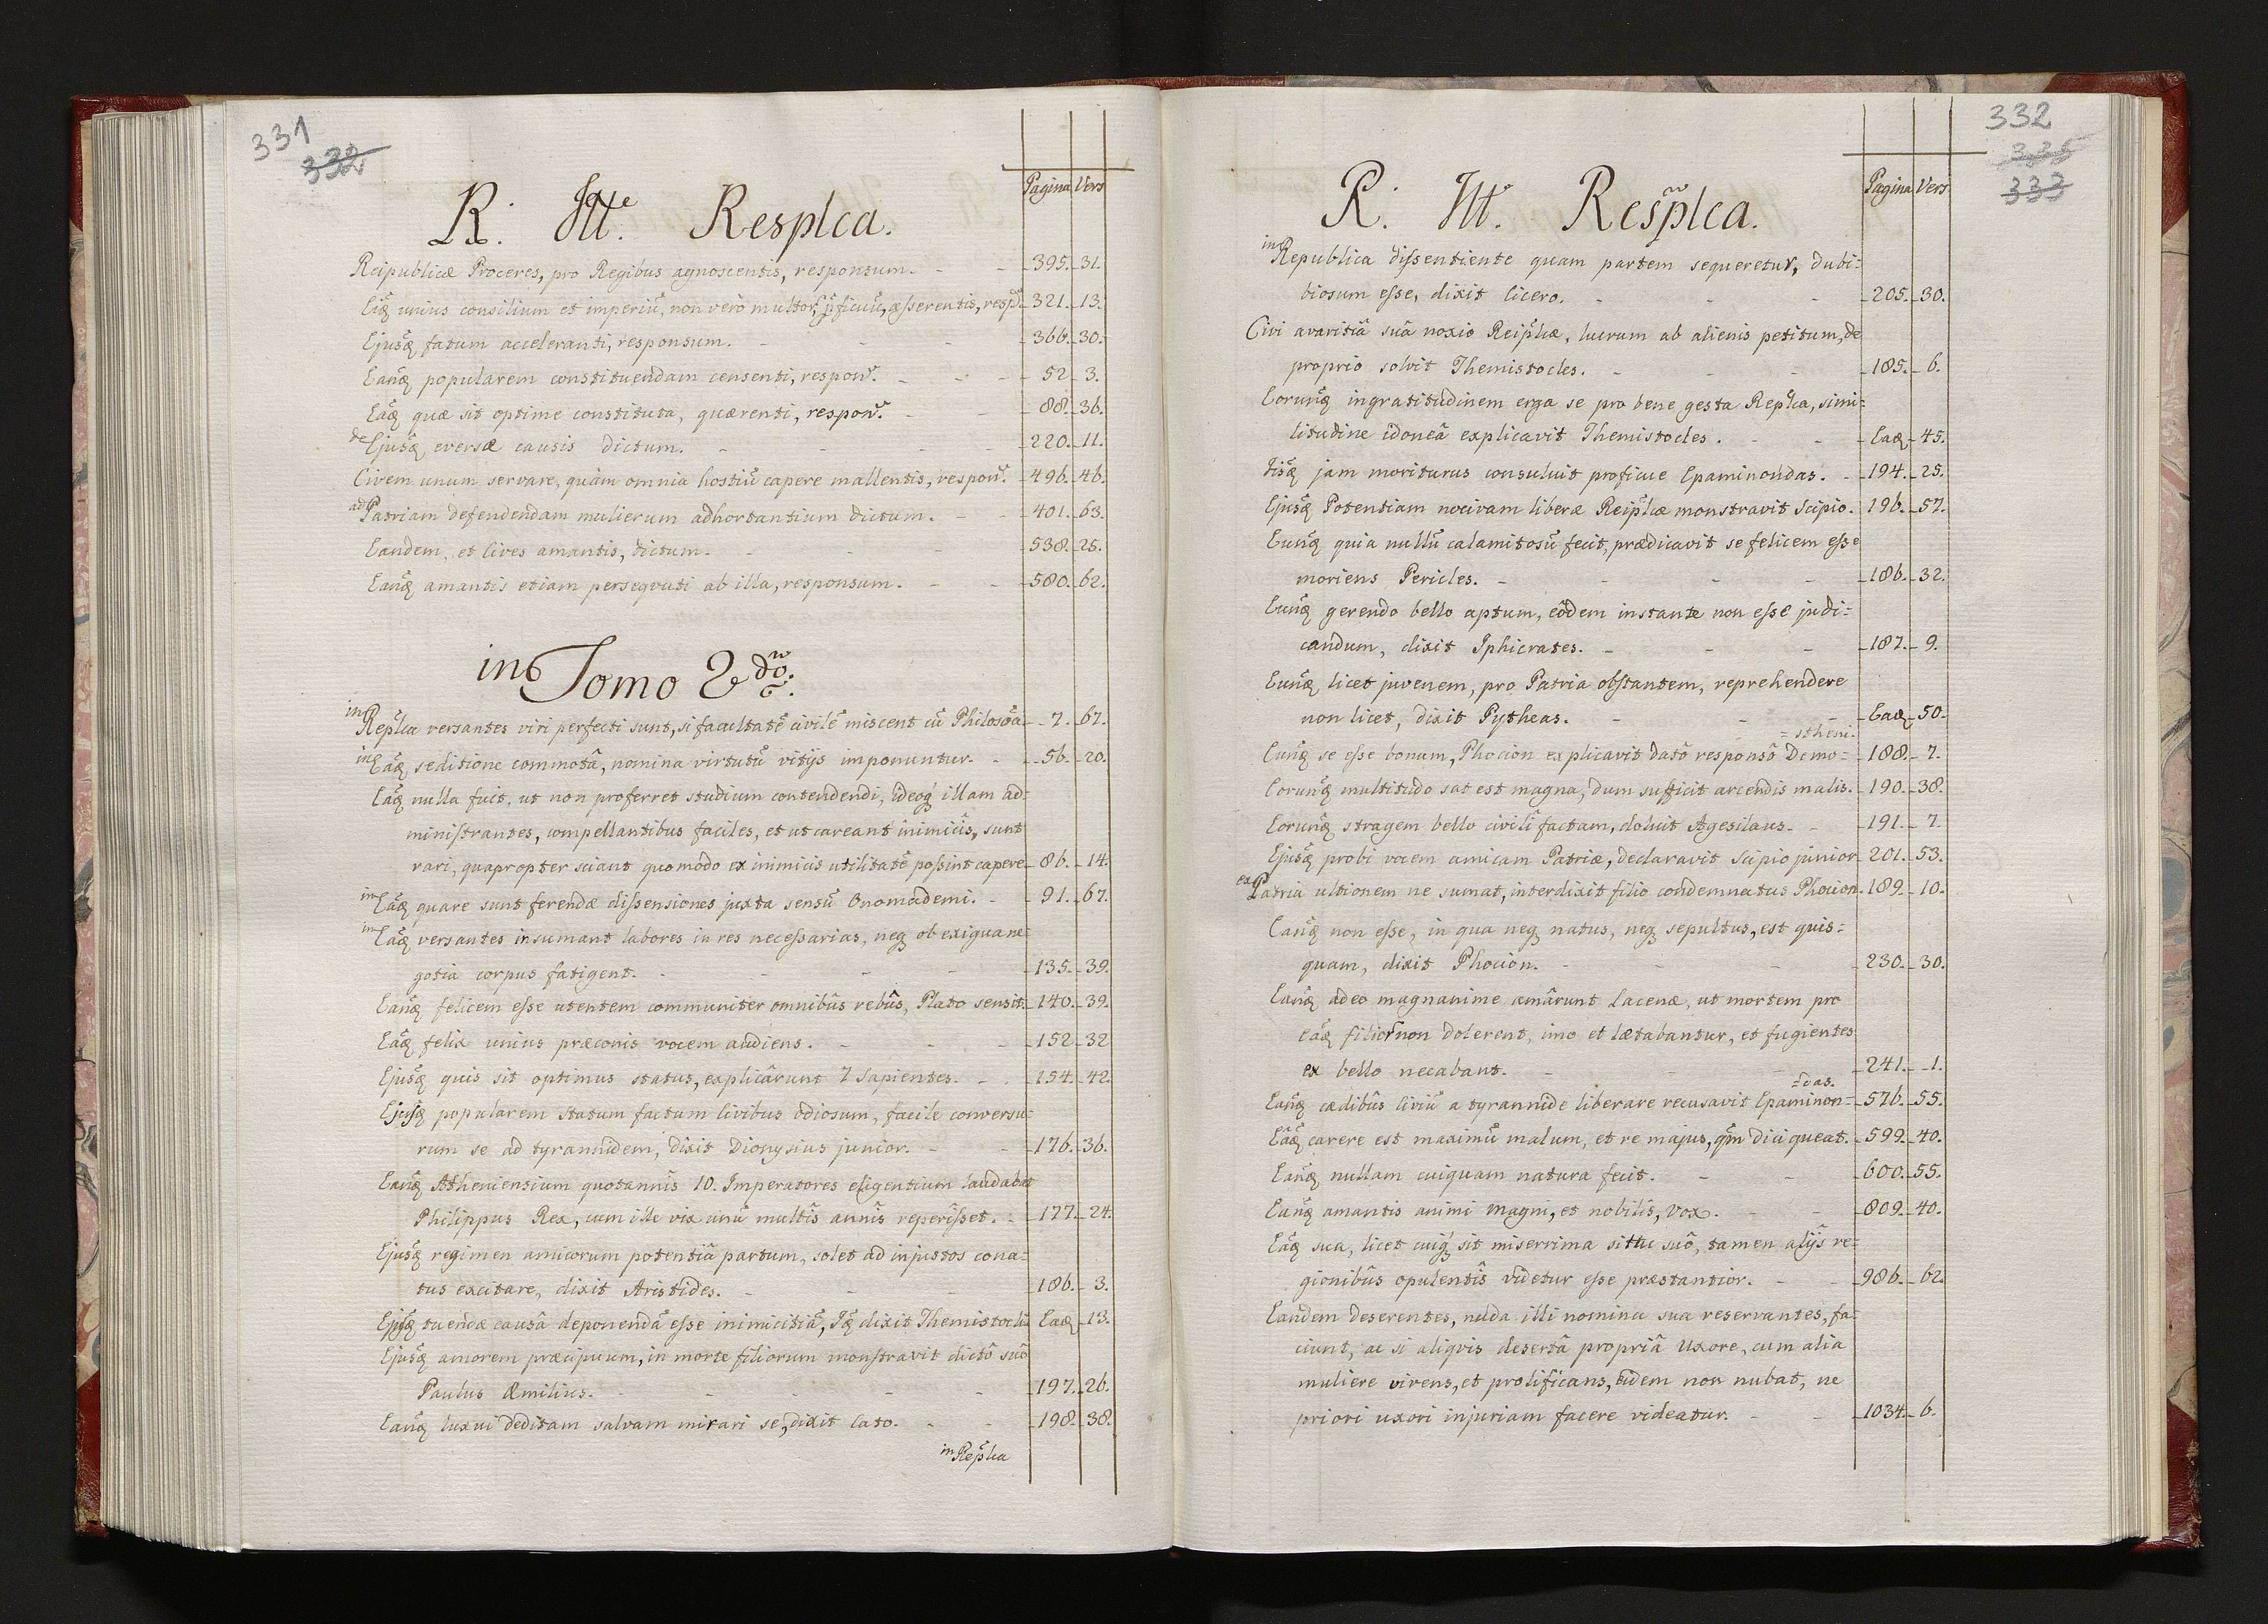 331
332
Pagina Vers
R. Itt. Resplca.
Reipublicæ Proceres, pro Regibus agnoscentis, responsum. - - 395. 31.
unius consilium et imperiū, non verò multor, asserentis, resp. 321. 13.
Ejusq̃ fatum acceleranti, responsum. - - - 366. 30.
Eanq̃ popularem constituendam censenti, respon. - - - 52. 3.
Eaq̃ quæ sit optime constituta, quærenti, respon. - - 88. 36.
de Ejusq̃ eversæ causis dictum. - - - 220. 11.
Civem unum servare, quàm omnia hostiū capere mallentis, respon. 496. 46.
ad Patriam defendendam mulierum adhortantium dictum. - - 401. 63.
Eandem, et Cives amantis, dictum. - - - 538. 25.
Eanq̃ amantis etiam persequuti ab illa, responsum. - - 580. 62.
in Tomo 2do.
in Replca versantes viri perfecti sunt, si facultatē civilē miscent cū Philosoā 7. 67.
in Eaq̃ seditione commotâ, nomina virtutū vitijs imponuntur. - 56. 20.
Eaq̃ nulla fuit, ut non proferret studium contendendi, ideoq́ illam ad=
ministrantes, compellantibus faciles, et ut careant inimicis, sunt
rari, quapropter sciant quomodo ex inimicis utilitatē possint capere 86. 14.
in Eaq̃ quare sunt ferendæ dissensiones juxta sensū Onomademi. - 91. 67.
in Eaq̃ versantes insumant labores in res necessarias, neq ob exigua ne=
gotia corpus fatigent. - - - - 135. 39.
Eanq̃ felicem esse utentem communiter omnibûs rebûs, Plato sensit. 140. 39.
Eaq̃ felix unius præconis vocem audiens. - - - 152 32
Ejusq̃ quis sit optimus status, explicârunt 7 Sapientes. - - 154. 42.
Ejusq̃ popularem statum factum Civibus odiosum, facile conversu=
rum se ad tyrannidem, dixit Dionysius junior. - - 176. 36.
Eanq̃ Atheniensium quotannis 10. Imperatores eligentium laudabat
Philippus Rex, cum ille vix unū multîs annîs reperîsset. - 177. 24.
Ejusq̃ regimen amicorum potentiâ partum, solet ad injustos cona=
tus excitare, dixit Aristides. - - - 186. 3.
Ejusq̃ tuendæ causâ deponendā esse inimicitiā, dixit Themistocli Eaq̃ 13.
Ejusq̃ amorem præcipuum, in morte filiorum monstravit dictô suô
Paulus Æmilius. - - - - - 197. 26.
Eanq̃ luxui deditam salvam mirari se, dixit Cato. - - 198. 38.
in Replca
332
335
333
Pagina Vers
R. Itt. Resplca.
in Republica dissentiente quam partem sequeretur, dubi=
biosum esse, dixit Cicero. - - - 205. 30.
Civi avaritiâ suâ noxio Reiplcæ, lucrum ab alienis petitum, de
proprio solvit Themistocles. - - - 185. 6.
Eorunq̃ ingratitudinem erga se pro bene gesta Replca, simi=
litudine idoneâ explicavit Themistocles. - - Eaq̃ 45.
Iisq̃ jam moriturus consuluit proficue Epaminondas. - 194. 25.
Ejusq̃ Potentiam nocivam liberæ Reiplcæ monstravit Scipio. 196. 57.
Eunq̃ quia nullū calamitosū fecit, prædicavit se felicem esse
moriens Pericles. - - - - 186. 32.
Eunq̃ gerendo bello aptum, eôdem instante non esse judi=
candum, dixit Iphicrates. - - - 187. 9.
Eunq̃ licet juvenem, pro Patria obstantem, reprehendere
non licet, dixit Pytheas. - - - Eaq̃ 50.
Eunq̃ se esse bonum, Phocion explicavit datô responsô Demo= 188. 7.
=stheni.
Eorunq̃ multitudo sat est magna, dum sufficit arcendis malis. 190. 38.
Eorunq̃ stragem bello civili factam, doluit Agesilaus. - 191. 7.
Ejusq̃ probi vocem amicam Patriæ, declaravit Scipio junior 201. 53.
ex Patria ultionem ne sumat, interdixit filio condemnatus Phocion. 189. 10.
Eanq̃ non esse, in qua neq natus, neq sepultus, est quis=
quam, dixit Phocion. - - - 230. 30.
Eanq̃ adeo magnanime amârunt Lacenæ, ut mortem pro
eaq̃ filior non dolerent, imo et lætabantur, et fugientes
ex bello necabant. - - - 241. 1.
Eanq̃ cædibûs Civiū a tyrannide liberare recusavit Epaminon= 576. 55.
=das.
Eaq̃ carere est maximū malum, et re majus, qm dici queat. 599. 40.
Eanq̃ nullam cuiquam natura fecit. - - 600. 55.
Eanq̃ amantis animi magni, et nobilis, vox. - - 809. 40.
Eaq̃ sua, licet cuiq́ sit miserrima situ suô, tamen alijs re=
gionibûs opulentîs videtur esse præstantior. - - 986. 62.
Eandem deserentes, nuda illi nomina sua reservantes, fa=
ciunt, ac si aliqvis desertâ propriâ uxore, cum alia
muliere vivens, et prolificans, eidem non nubat, ne
priori uxori injuriam facere videatur. - - 1034. 6.